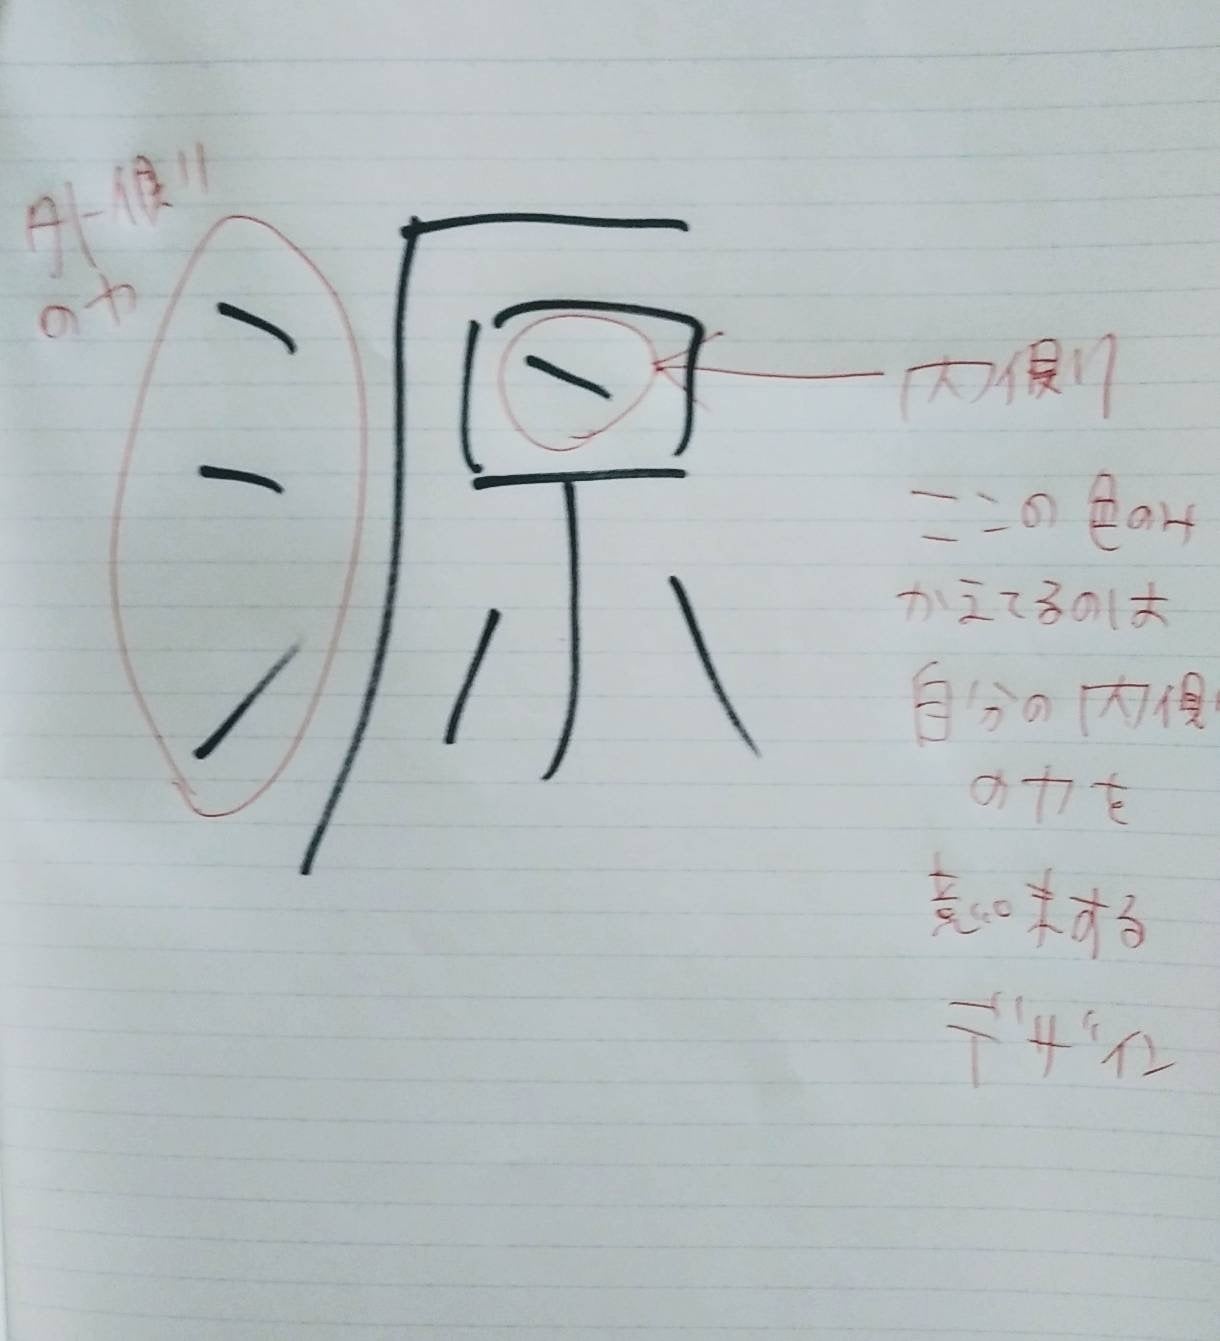 外側
の力
源
内側
ここの色のみ
かえてるのは
自分の内側
の力を
意味する
デザイン